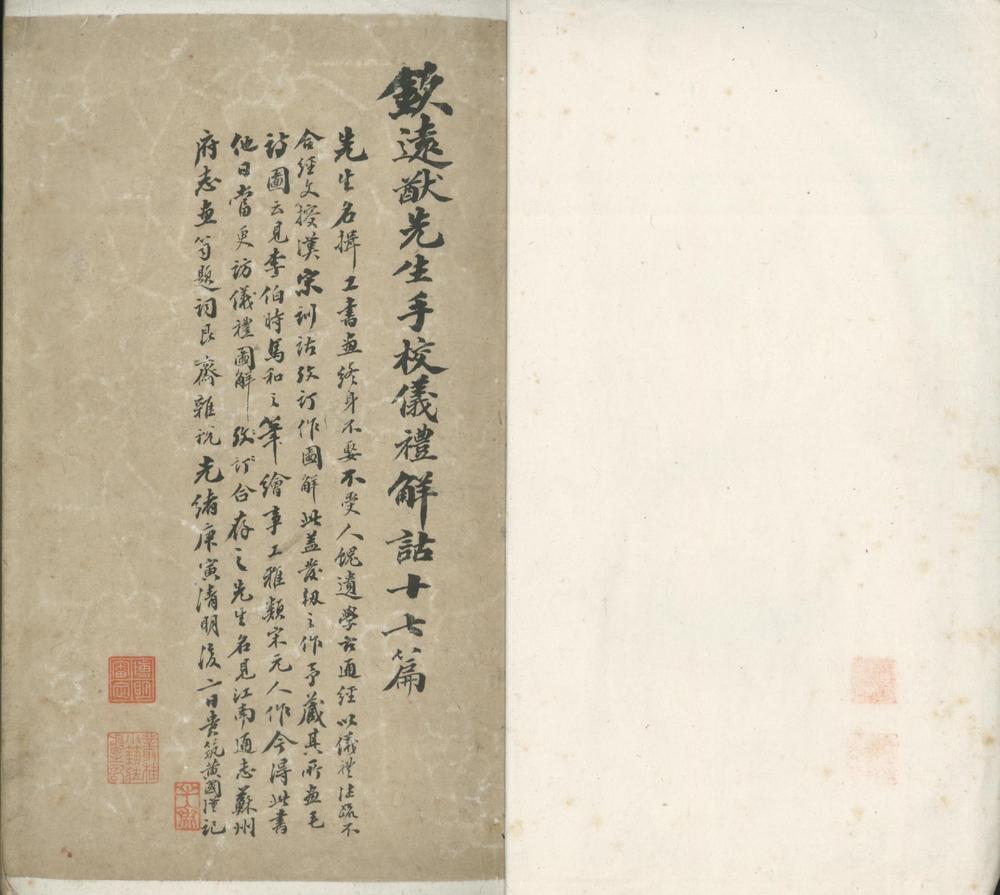 欽遠猷先生手校儀禮解詁十七篇
先生名揖工書畫終身不娶不受人餽遺學古通經以儀禮注疏不
合經文按漢宋訓詁攷訂作圖解此蓋發軔之作予藏其所畫毛
詩圖云見李伯時馬和之筆繪事工雅類宋元人作今得此書
他日當更訪儀禮圖解攷訂合存之先生名見江南通志蘇州
府志畫 題詞艮齋雜說光緒庚寅清明後二日貴筑黃國瑾記